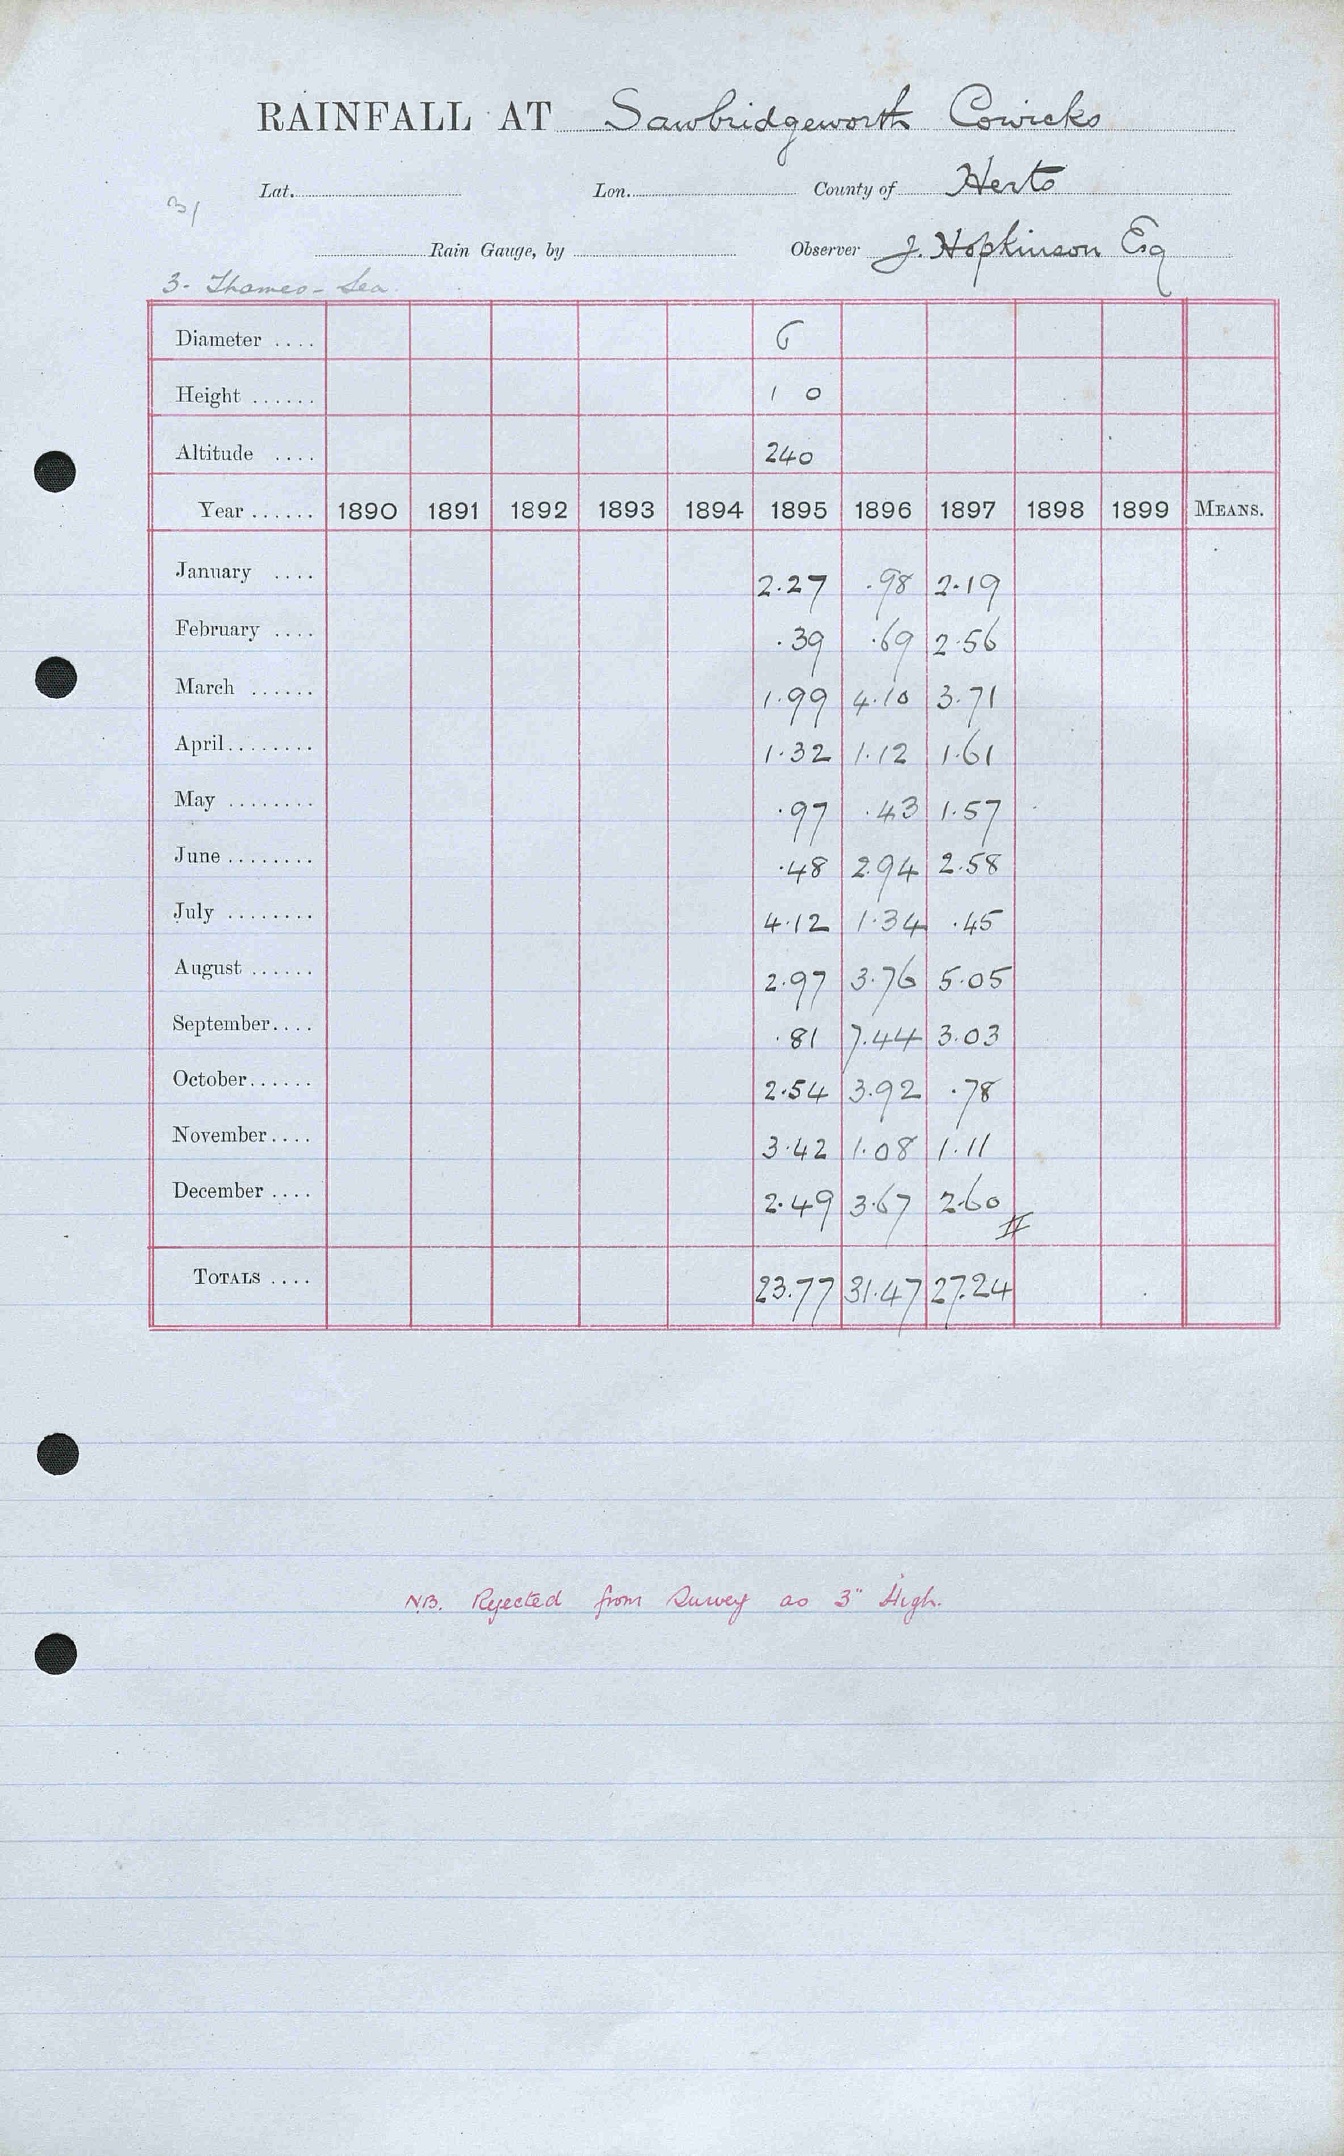 RAINFALL AT Sawbridgeworth Cowicks
Lat. Lon. County of Herts
31
Rain Gauge, by Observer J. Hopkinson Esq
3- Thames - Sea.
Diameter .... 6
Height ...... 1 0
Altitude .... 240
Year ...... 1890 1891 1892 1893 1894 1895 1896 1897 1898 1899 MEANS.
January .... 2.27 .98 2.19
February .... .39 .69 2.56
March ...... 1.99 4.10 3.71
April........ 1.32 1.12 1.61
May ........ .97 .43 1.57
June ........ .48 2.94 2.58
July ........ 4.12 1.34 .45
August ...... 2.97 3.76 5.05
September.... .81 7.44 3.03
October...... 2.54 3.92 .78
November.... 3.42 1.08 1.11
December .... 2.49 3.67 2.60
TOTALS .... 23.77 31.47 27.24
N.B. Rejected from Survey as 3" High.